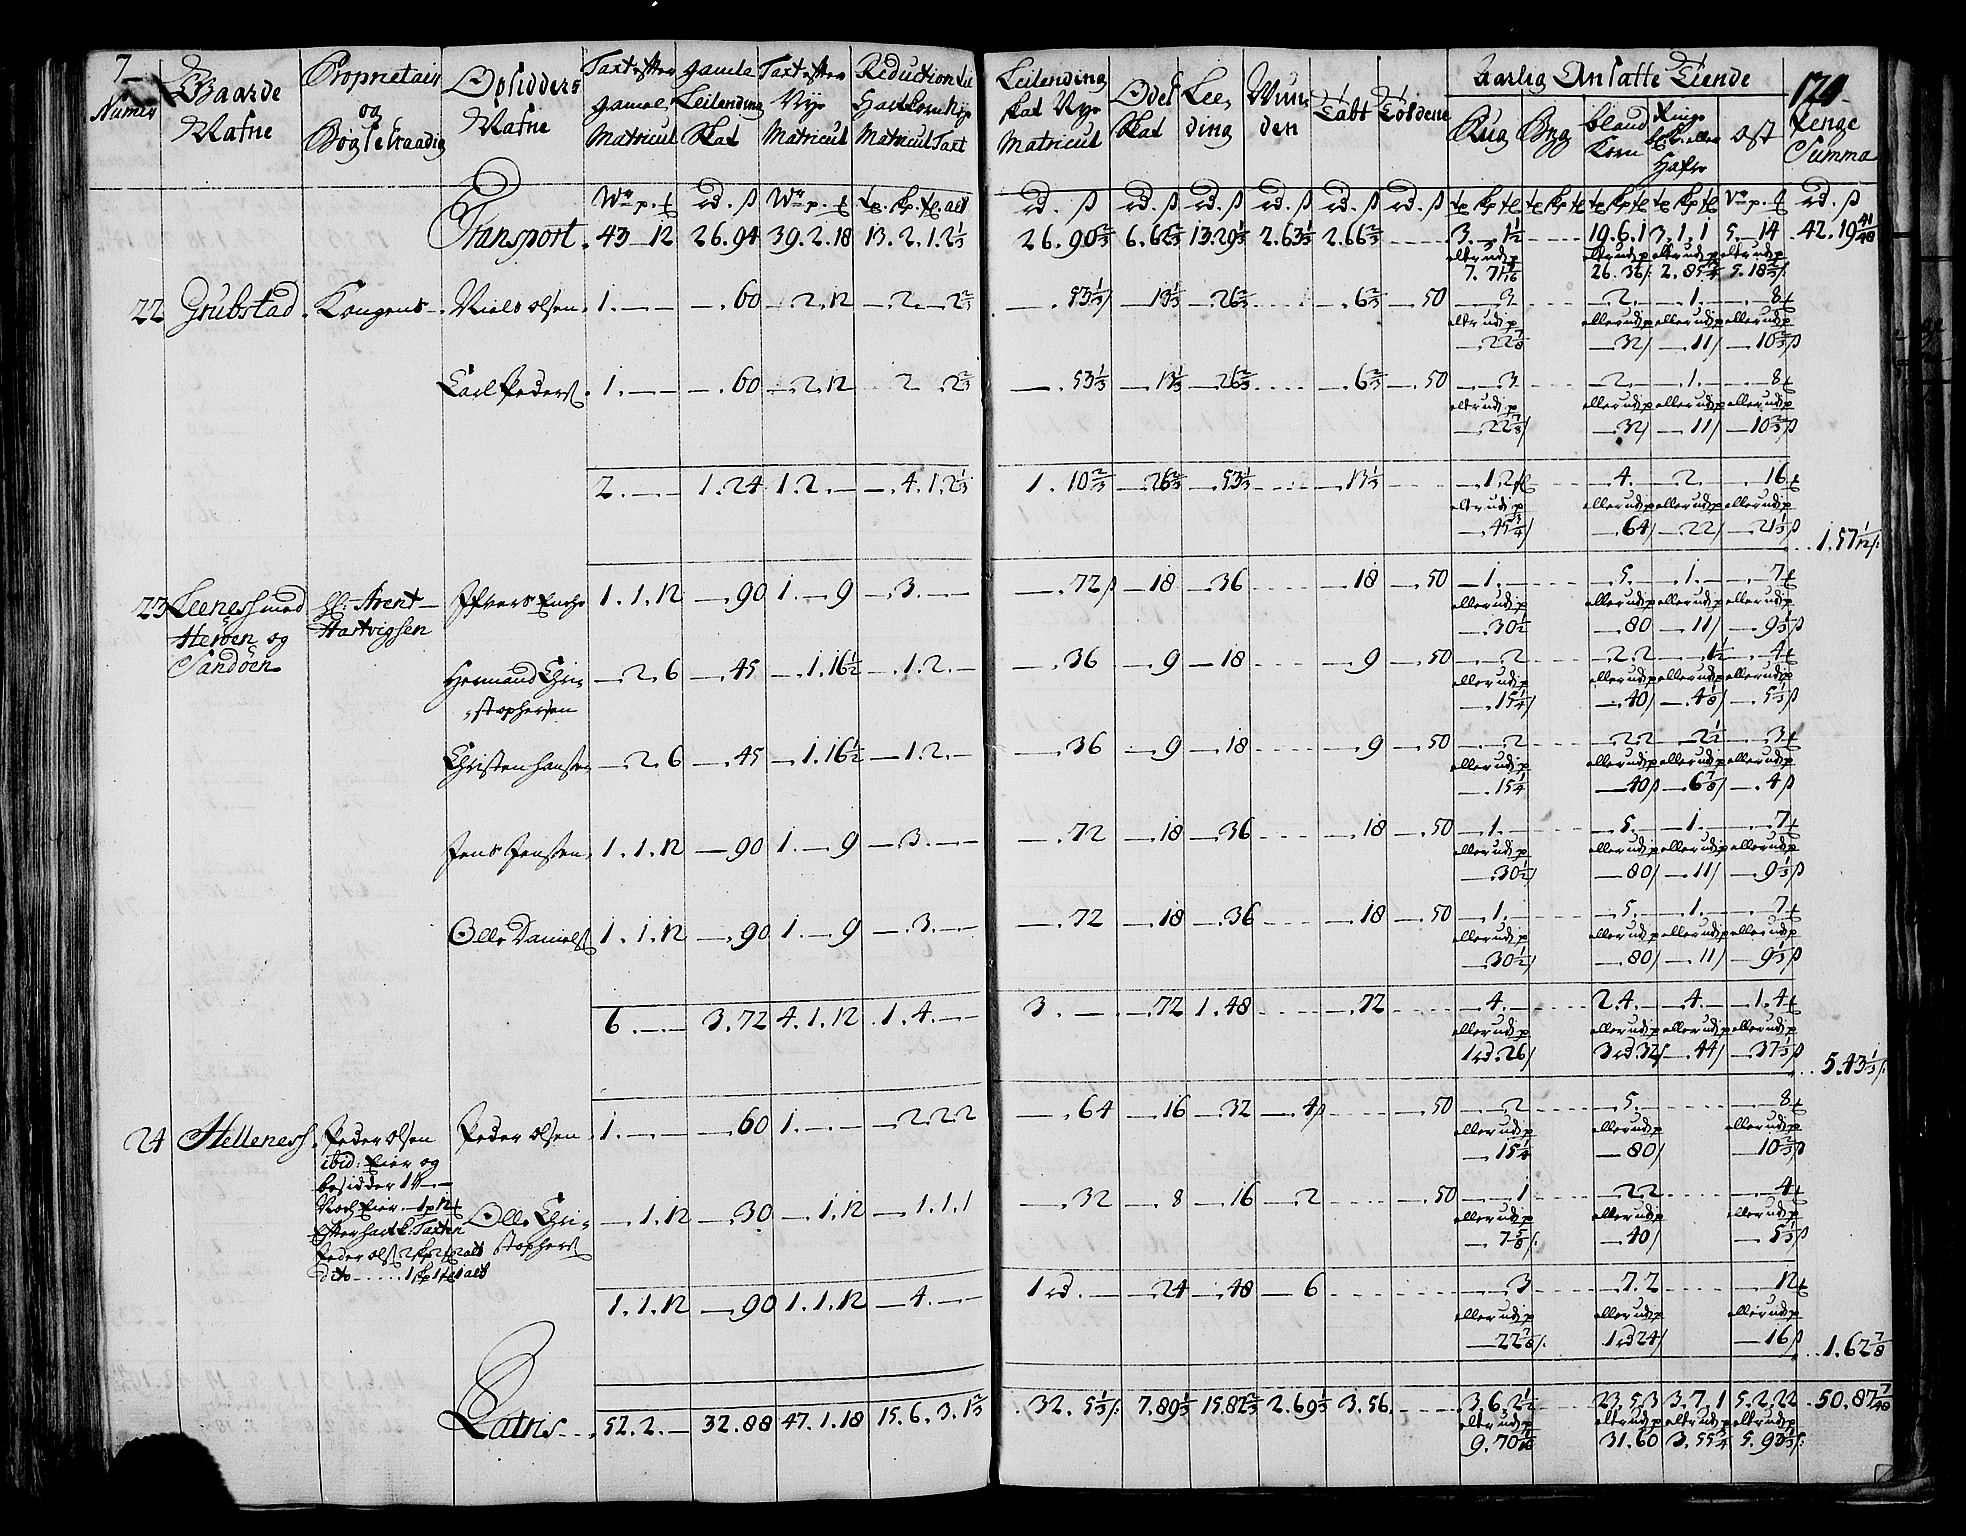 7
Numer | Gaarde Nafne | Proprietair og Bøgselraadig | Opsidders Nafne | Taxt efter gamel Matricul | gamle Leilending Skat | Taxt efter Nye Matricul | Reduction til Hartkorn Nye Matricul Taxt | Leilending skat Nye Matricul | Odel Skat | Leeding | Wunden | Tabt | Foldene | Aarlig Ansatte Tiende | 174.
Rug | Byg | bland Korn | Ringe eller Hafre | ost | Penge Summa
rd. ß | rd. ß | rd. ß | rd. ß | rd. ß | rd. ß | rd. ß | rd. ß
Transport. | 43 — 12 | 26.94 | 39.2.18 | 13.2.1.2 1/3 | 26.90 2/3 | 6.62 2/3 | 13.29 1/3 | 2.63 1/3 | 2.66 2/3 | — . 19 . | 3.—.1 1/2 | 19.6.1 | 3.1.1 | 5.—14 | 42.19 41/48
26.36 | 2.85 | 5.18
22 | Grubstad | Kongens | Niels Olsen | 1.—.— | —.60 | —.2.12 | —.2.—.2 2/3 | —.53 1/3 | —.13 1/3 | —.26 2/3 | —.6 2/3 | —.50 | —.3 | —.2. | —.1. | —.8
eller udj p | eller udj p | eller udj p | eller udj p
—.22 7/8 | —.32 | —.11 | —.10 2/3 ß
Carl Peders | 1.—.— | —.60 | —.2.12 | 2 . 2 2/3 | —.53 1/3 | —.13 1/3 | —.26 2/3 | —.6 2/3 | —.50 | —.3. | —.2. | —.1. | —.8
eller udj p | eller udj p | eller udj p | eller udj p
—.22 7/8 | —.32 | —.11 | —.10 2/3 ß
2.—.— | 1.24 | 1.2.— | —.4.1.2 1/3 | 1.10 2/3 | —.26 2/3 | —.53 1/3 | —.13 1/3 | —.1.2 | —.4. | —.2. | —.16
eller udj p | eller udj p | eller udj p | eller udj p
—.45 3/4 | —.64 | —.22 | —.21 1/3 ß | 1.57 1/12
23 | Leeness med Herøen og Sandøen | Hr: Arent Hartvigsen | Iffver | 1.1.12 | —.90 | 1.—9 | —.3.—.— | —.72 ß | —.18 | —.36 | —.18 | —.50 | —.1.— | —.5.— | —.1.— | —.7
eller udj p | eller udj p | eller udj p | eller udj p
—.30 1/2 | —.80 | —.11 | —.9 1/3 ß
Hermand Christophersen | —.2.6 | —.45 | —.1.16 1/2 | —.1.2.— | —.36 | —.9 | —.18 | —.9 | —.50 | —.2 | —.2.2 | —.1 1/2 | —.4
eller udj p | eller udj p | eller udj p | eller udj p
—.15 1/4 | —.40 | —.4 1/8 | —.5 1/3 ß
Christen Hansen | —.2.6 | —.45 | —.1.16 1/2 | —.1.2.— | —.36 | —.9 | —.18 | —.9 | —.50 | —.2 | —.2.2 | —.2 1/2 | —.3
eller udj p | eller udj p | eller udj p | eller udj p
—.15 1/4 | —.40 ß | —.6 7/8 | —.4 ß
Jens Jensen | 1.1.12 | —.90 | 1.—9 | —.3.—.— | —.72 | —.18 | —.36 | —.18 | —.50 | —.1.— | —.5. | —.1.— | —.7
eller udj p | eller udj p | eller udj p | eller udj p
—.30 1/2 | —.80 | —.11 | —.9 1/3 ß
Olle Daniels | 1.1.12 | —.90 | 1.—9 | —.3.—.— | —.72 | —.18 | —.36 | —.18 | —.50 | —.1.— | —.5. | —.1.— | —.7
eller udj p | eller udj p | eller udj p | eller udj p
—.30 1/2 | —.80 | —.11 | —.9 1/3 ß
6.—.— | 3.72 | 4.1.12 | 1.4.—.— | 3.— | —.72 | 1.48 | —.72 | —.4.— | 2.4.— | —.4.— | —.1.4
eller udj p | eller udj p | eller udj p | eller udj p
1 rd. 26 | 3 rd. 32 | —.44 | —.37 1/3 ß | 5.43 1/3
24 | Helleness | Peder Olsen ibid: Eier og besidder 1 | Peder Olsen | 1.—.— | —.60 | 1.—.— | —.2.2.2 | —.64 | —.16 | —.32 | —.4 ß | —.50 | —.2 | —.5. | —.8
eller udj p | eller udj p | eller udj p
—.15 1/4 | —.80 | —.10 2/3 ß
Noch Eier
Efter hartk: Taxten
Peder ols
dito | Olle Christophers | —.1.12 | —.30 | —.1.12 | —.1.1.1 | —.32 | —.8 | —.16 | —.2 | —.50 | —.1 | —.2.2 | —.4
eller udj p | eller udj p | eller udj p
—.7 5/8 | —.40 | —.5 1/3 ß
1.1.12 | —.90 | 1.1.12 | —.4.—.— | 1 rd.— | —.24 | —.48 | —.6 | —.3 | —.7.2 | —.12
eller udj p | eller udj p | eller udj p
—.22 7/8 | 1 rd 24 | —.16 ß | 1.62 7/8
Latris | 52.2.— | 32.88 | 47.1.18 | 15.6.3.1 2/3 | 32.5 1/3 | 7.89 1/3 | 15.82 2/3 | 2.69 1/3 | 3.56 | 3.6.2 1/2 | 23.5.3 | 3.7.1 | 5.2.22 | 50.87 7/48
31.60 | 3.55